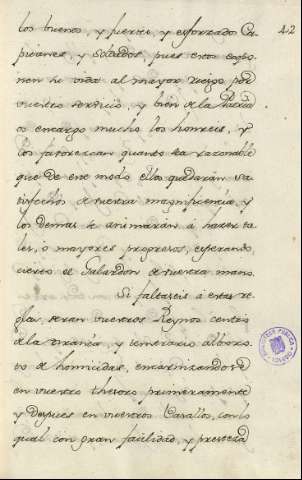 42
los buenos, y fuertes, y esforzados Ca-
pitanes, y Soldados, pues estos expo-
nen su vida al mayor riesgo por
vuestro servicio, y bien de la Patria
os encargo mucho los honreis, y
los favorezcais quanto sea razonable
que de este modo ellos quedarán sa-
tisfechos de vuestra magnificencia, y
los demas se animarán á hazer ta-
les, ó mayores progresos, esperando
ciertos el Galardon de vuestra mano.
Si faltaseis á estas re-
glas, seran vuestros Reynos centro
de la tiranía, y temerario alboro-
to de homicidas, encarnizandose
en vuestro thesoro primeramente
y despues en vuestros Vasallos, con lo
qual con gran facilidad, y presteza
BIBLIOTECA PUBLICA